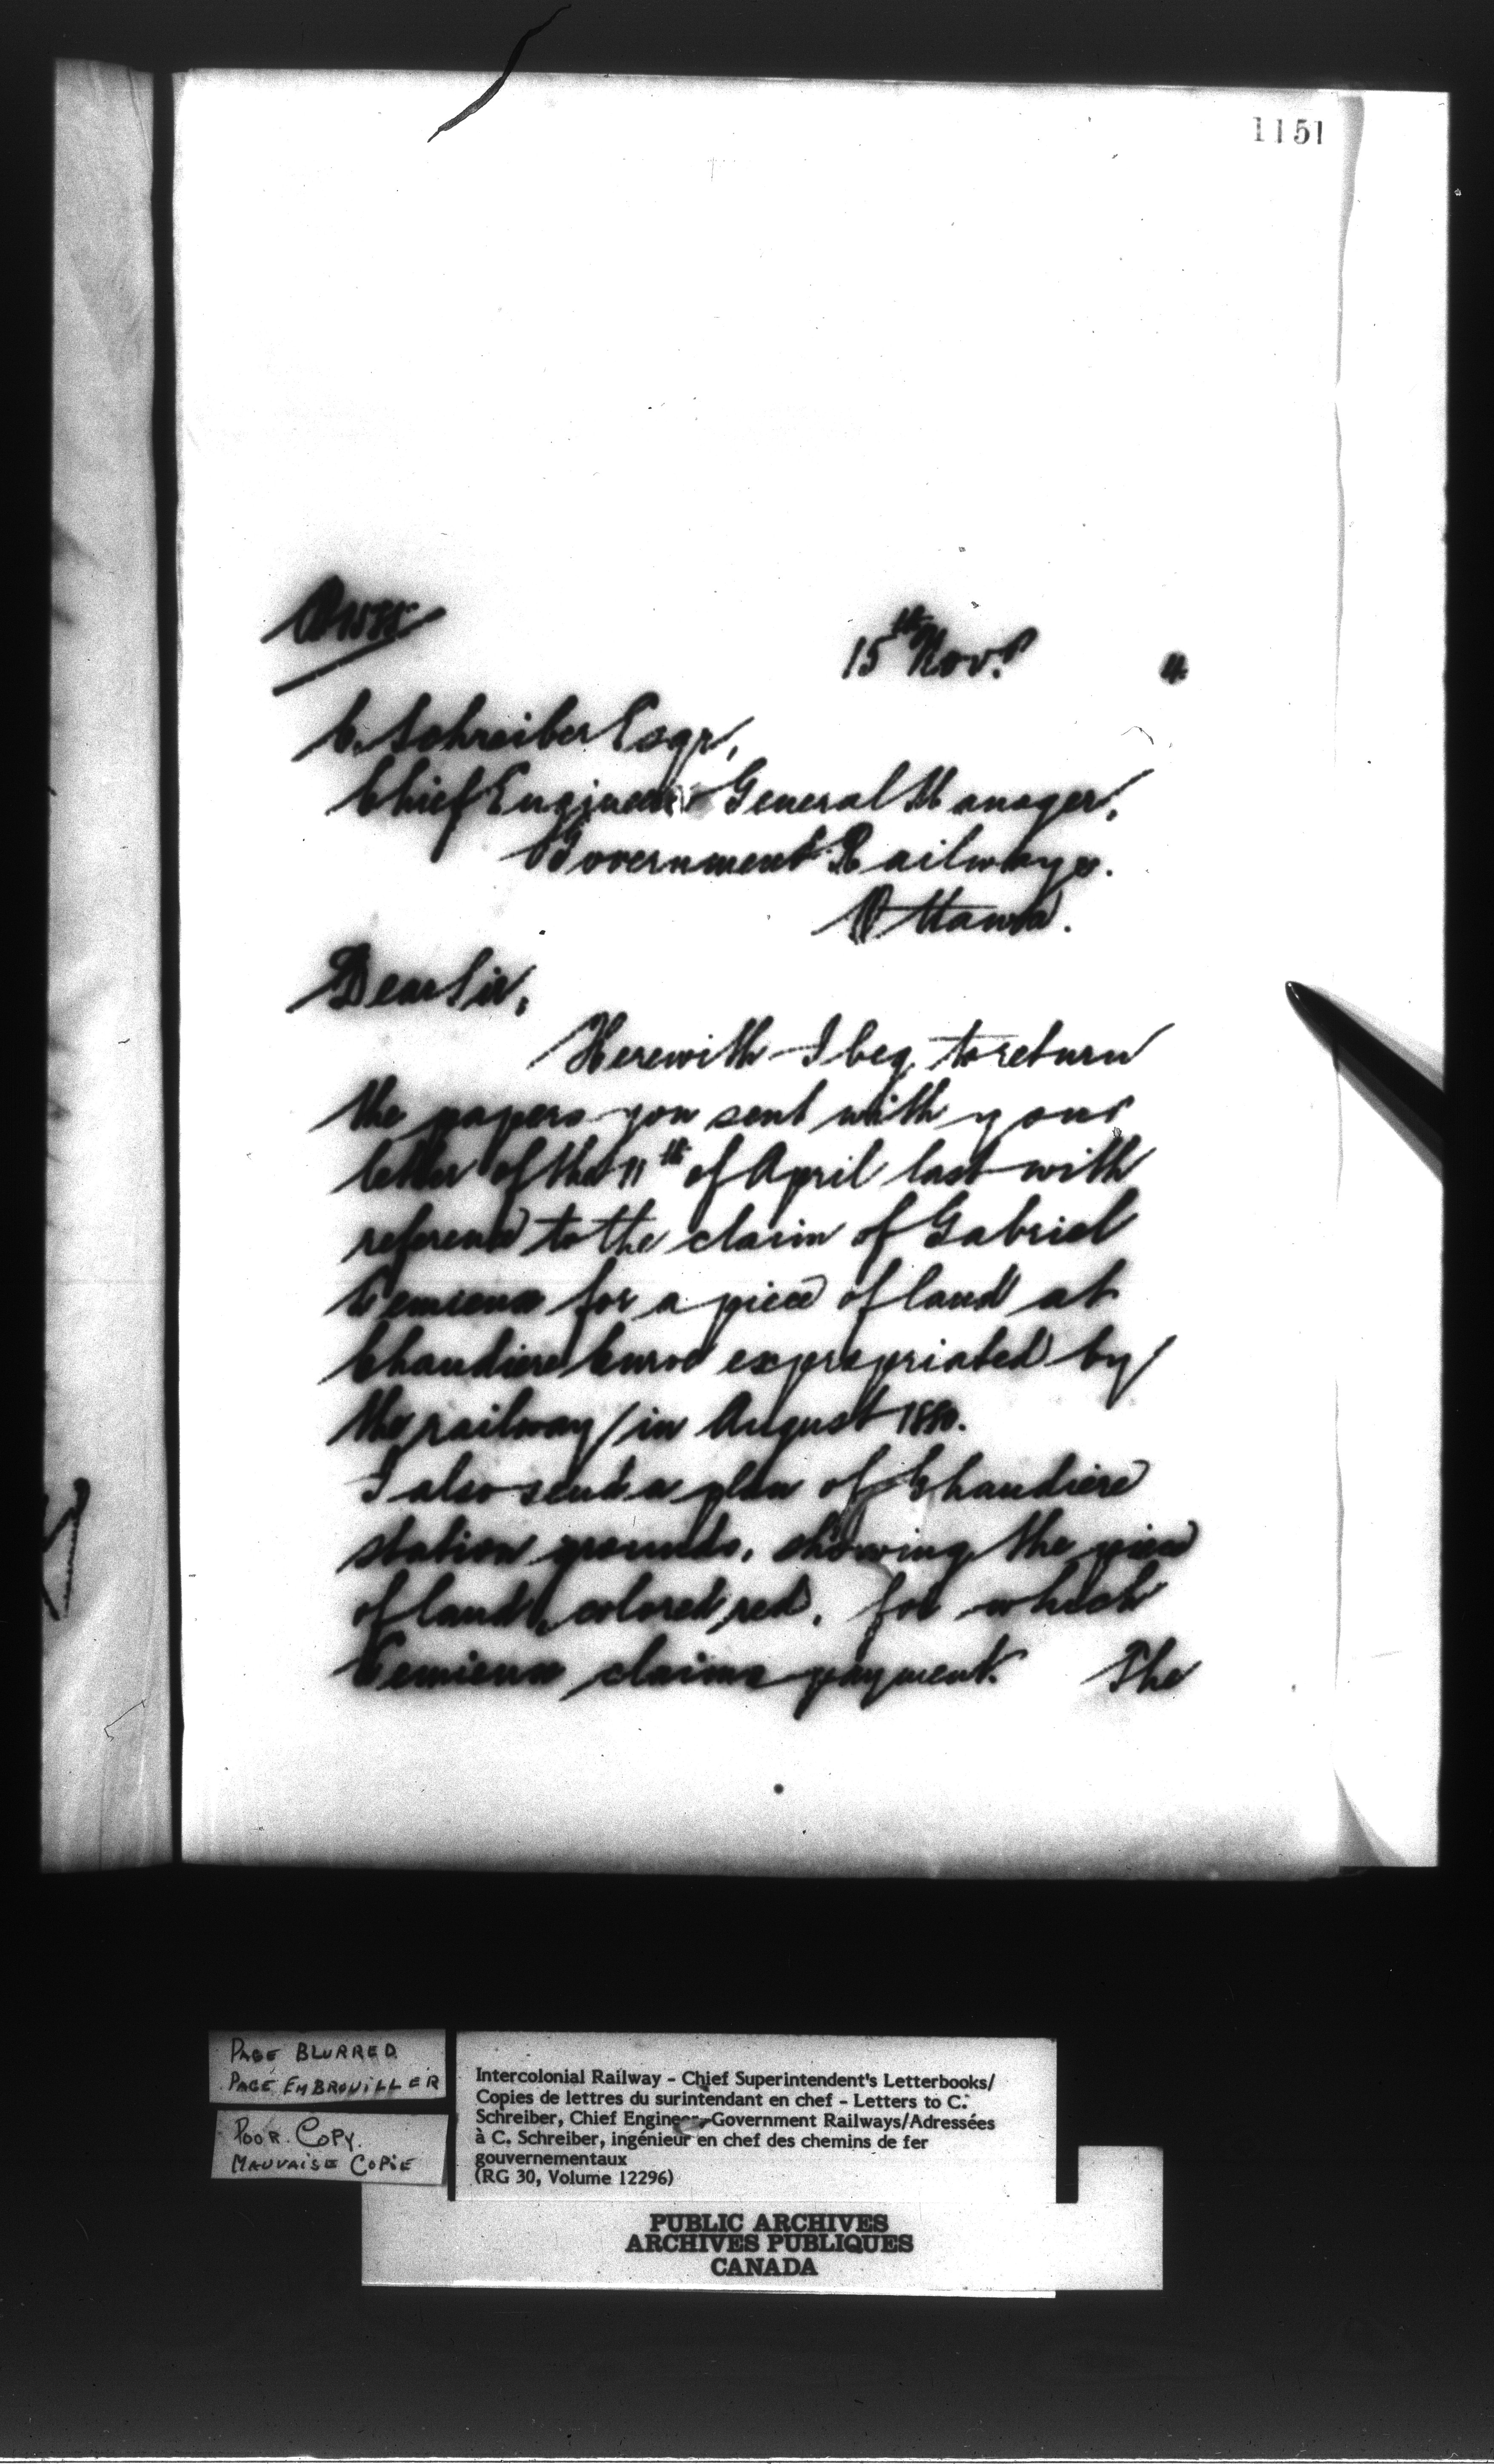 1151
15th Nov. 4
C. Schreiber Esqr,
Chief Engineer General Manager,
Government Railways.
Ottawa.
Dear Sir,
Herewith I beg to return
the papers you sent with your
letter of the 11th of April last with
reference to the claim of Gabriel
Lemieux for a piece of land at
Chaudiere Curve expropriated by
the railway in August 1880.
I also send a plan of Chaudiere
station grounds, showing the piece
of land, colored red, for which
Lemieux claims payment. The
PAGE BLURRED
PAGE EMBROUILLER
POOR COPY.
MAUVAISE COPIE
Intercolonial Railway - Chief Superintendent's Letterbooks/
Copies de lettres du surintendant en chef - Letters to C.
Schreiber, Chief Engineer-Government Railways/Adressées
à C. Schreiber, ingénieur en chef des chemins de fer
gouvernementaux
(RG 30, Volume 12296)
PUBLIC ARCHIVES
ARCHIVES PUBLIQUES
CANADA